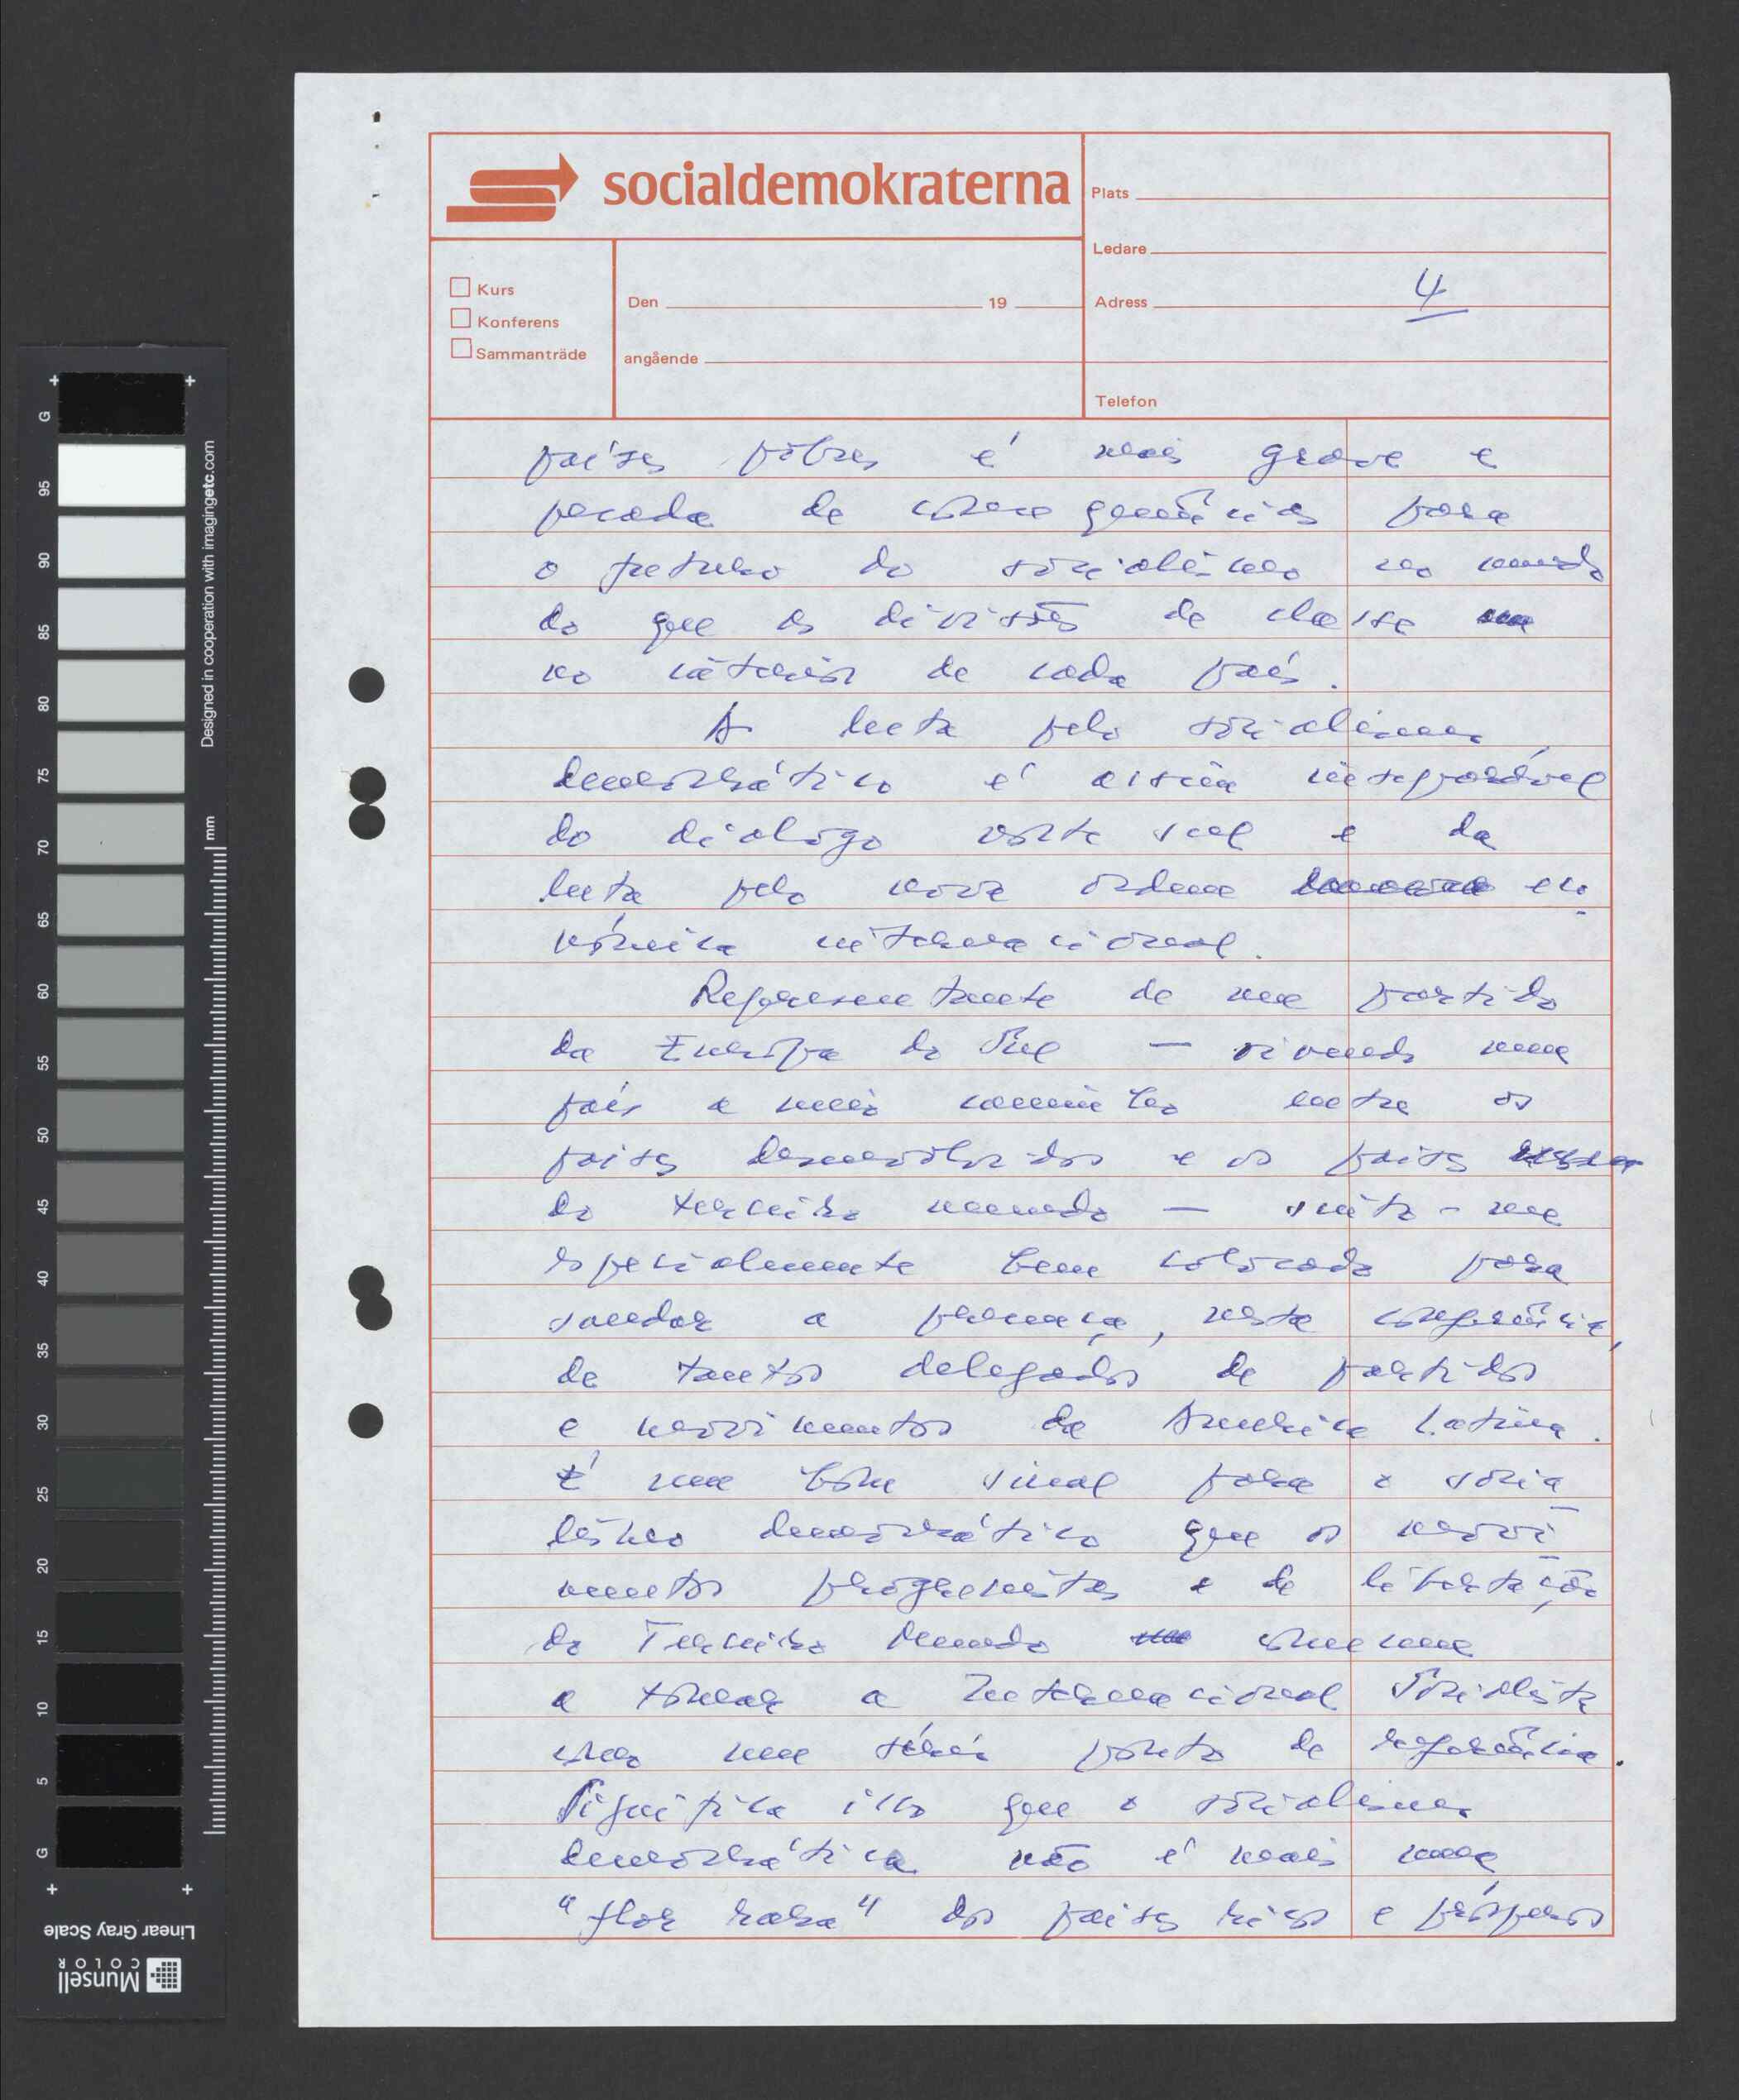 socialdemokraterna
Plats
Ledare
Kurs
Konferens
Sammanträde
Den 19
angående
Adress 4
Telefon
países pobres é mais grave e
pesada de consequências para
o futuro do socialismo no mundo
do que as divisões de classe
no interior de cada país.
A luta pelo socialismo
democrático é assim inseparável
do diálogo norte sul e da
luta pela nova ordem eco
nómica internacional.
Representante de um partido
da Europa do Sul — vivendo num
país a meio caminho entre os
países desenvolvidos e os países
do terceiro mundo — sinto-me
especialmente bem colocado para
saudar a presença, nesta conferência,
de tantos delegados de partidos
e movimentos da América Latina.
É um bom sinal para o socia
lismo democrático que os movi
mentos progressistas e de libertação
do Terceiro Mundo comecem
a tomar a Internacional Socialista
como um sério ponto de referência.
Significa isso que o socialismo
democrático não é mais uma
"flor rara" dos países ricos e prósperos
G
95
90
85
80
75
70
65
60
55
50
45
40
35
30
25
20
15
10
5
G
mm
Designed in cooperation with imagingetc.com
Linear Gray Scale
Munsell
COLOR